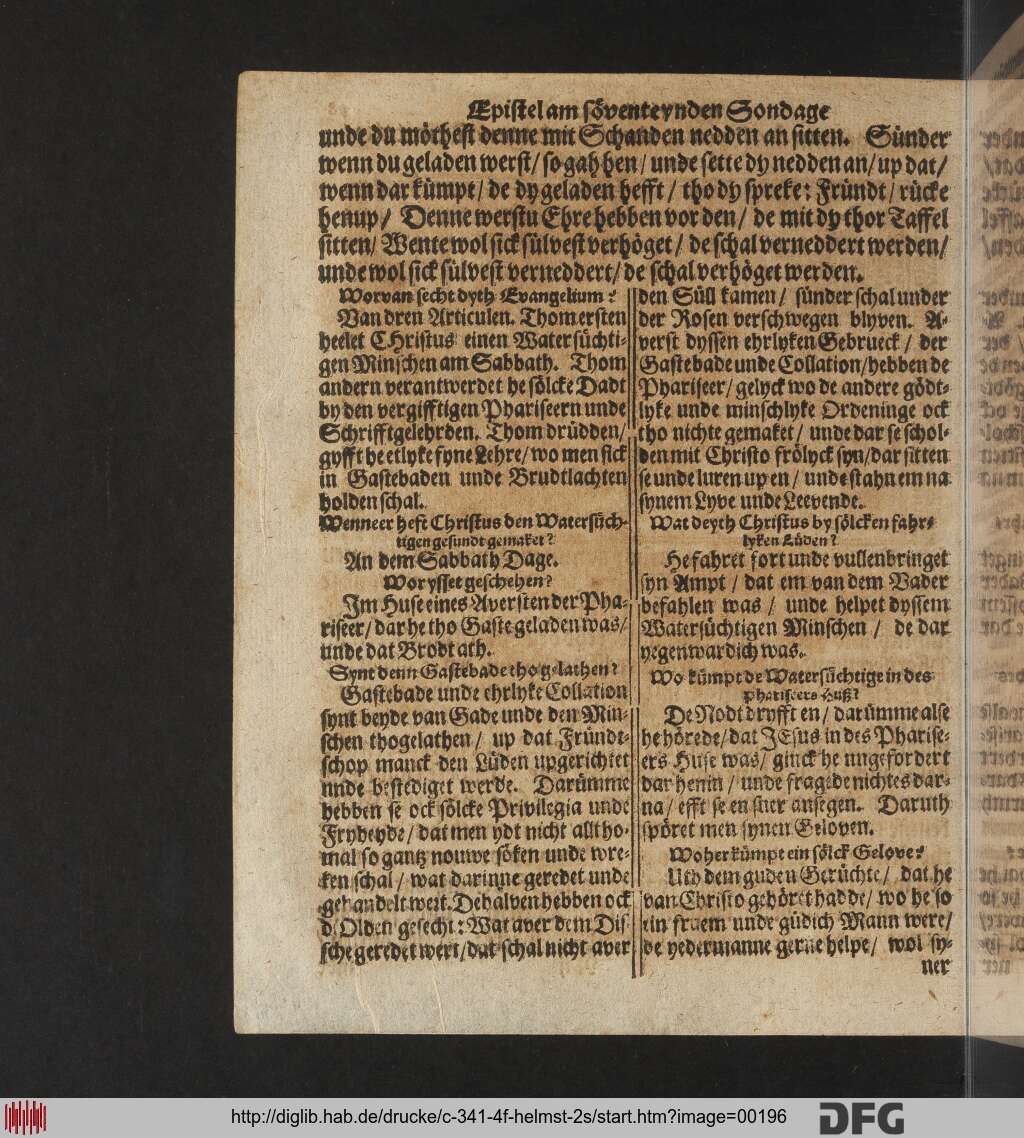 Epistel am söventeynden Sondage
unde du möthest denne mit Schanden nedden an sitten. Sünder
wenn du geladen werst/ so gah hen/ unde sette dy nedden an/ up dat/
wenn dar kümpt/ de dy geladen hefft/ tho dy spreke: Fründt/ rücke
henup/ Denne werstu Ehre hebben vor den/ de mit dy thor Taffel
sitten/ Wente wol sick sülvest verhöget/ de schal verneddert werden/
unde wol sick sülvest verneddert/ de schal verhöget werden.
Worvan secht dyth Evangelium?
Van dren Articulen. Thom ersten
heelet CHristus einen Watersüchti-
gen Minschen am Sabbath. Thom
andern verantwerdet he sölcke Dadt
by den vergifftigen Phariseern unde
Schrifftgelehrden. Thom drüdden/
gyfft he etlyke fyne Lehre/ wo men sick
in Gastebaden unde Brudtlachten
holden schal.
Wenneer heft Christus den Watersüch-
tigen gesundt gemaket?
An dem Sabbath Dage.
Wor ysset geschehen?
Im Huse eines Aversten der Pha-
riseer/ dar he tho Gaste geladen was/
unde dat Brodt ath.
Synt denn Gastebade thogelathen?
Gastebade unde ehrlyke Collation
synt beyde van Gade unde den Min-
schen thogelathen/ up dat Fründt-
schop manck den Lüden upgerichtet
unde bestediget werde. Darümme
hebben se ock sölcke Privilegia unde
Fryheyde/ dat men ydt nicht altho-
mal so gantz nouwe söken unde wre-
ken schal/ wat darinne geredet unde
gehandelt wert. Dehalven hebben ock
de Olden gesecht: Wat aver dem Dis-
sche geredet wert/ dat schal nicht aver
den Süll kamen/ sünder schal under
der Rosen verschwegen blyven. A-
verst dyssen ehrlyken Gebrueck/ der
Gastebade unde Collation/ hebben de
Phariseer/ gelyck wo de andere gödt-
lyke unde minschlyke Ordeninge ock
tho nichte gemaket/ unde dar se schol-
den mit Christo frölyck syn/ dar sitten
se unde luren up en/ unde stahn em na
synem Lyve unde Leevende.
Wat deyth Christus by sölcken fahr-
lyken Lüden?
He fahret fort unde vullenbringet
syn Ampt/ dat em van dem Vader
befahlen was/ unde helpet dyssem
Watersüchtigen Minschen/ de dar
yegenwardich was.
Wo kümpt de Watersüchtige in des
Phariseers Huß?
De Nodt dryfft en/ darümme alse
he hörede/ dat JEsus in des Pharise-
ers Huse was/ ginck he ungefordert
dar henin/ unde fragede nichtes dar-
na/ efft se en suer ansegen. Daruth
spöret men synen Geloven.
Woher kümpt ein sölck Gelove?
Uth dem guden Gerüchte/ dat he
van Christo gehöret hadde/ wo he so
ein fraem unde güdich Mann were/
de yedermanne gerne helpe/ wol sy-
ner
http://diglib.hab.de/drucke/c-341-4f-helmst-2s/start.htm?image=00196
DFG